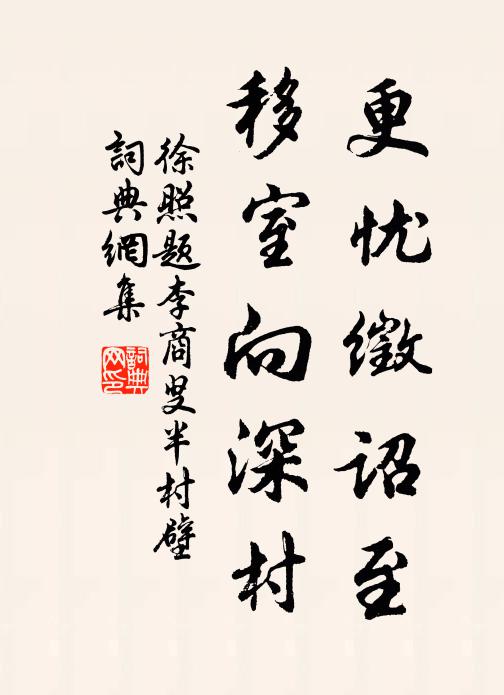 更忧徵诏至
移室向深村
徐照题李商叟半村壁
詞典網集
詞典网印